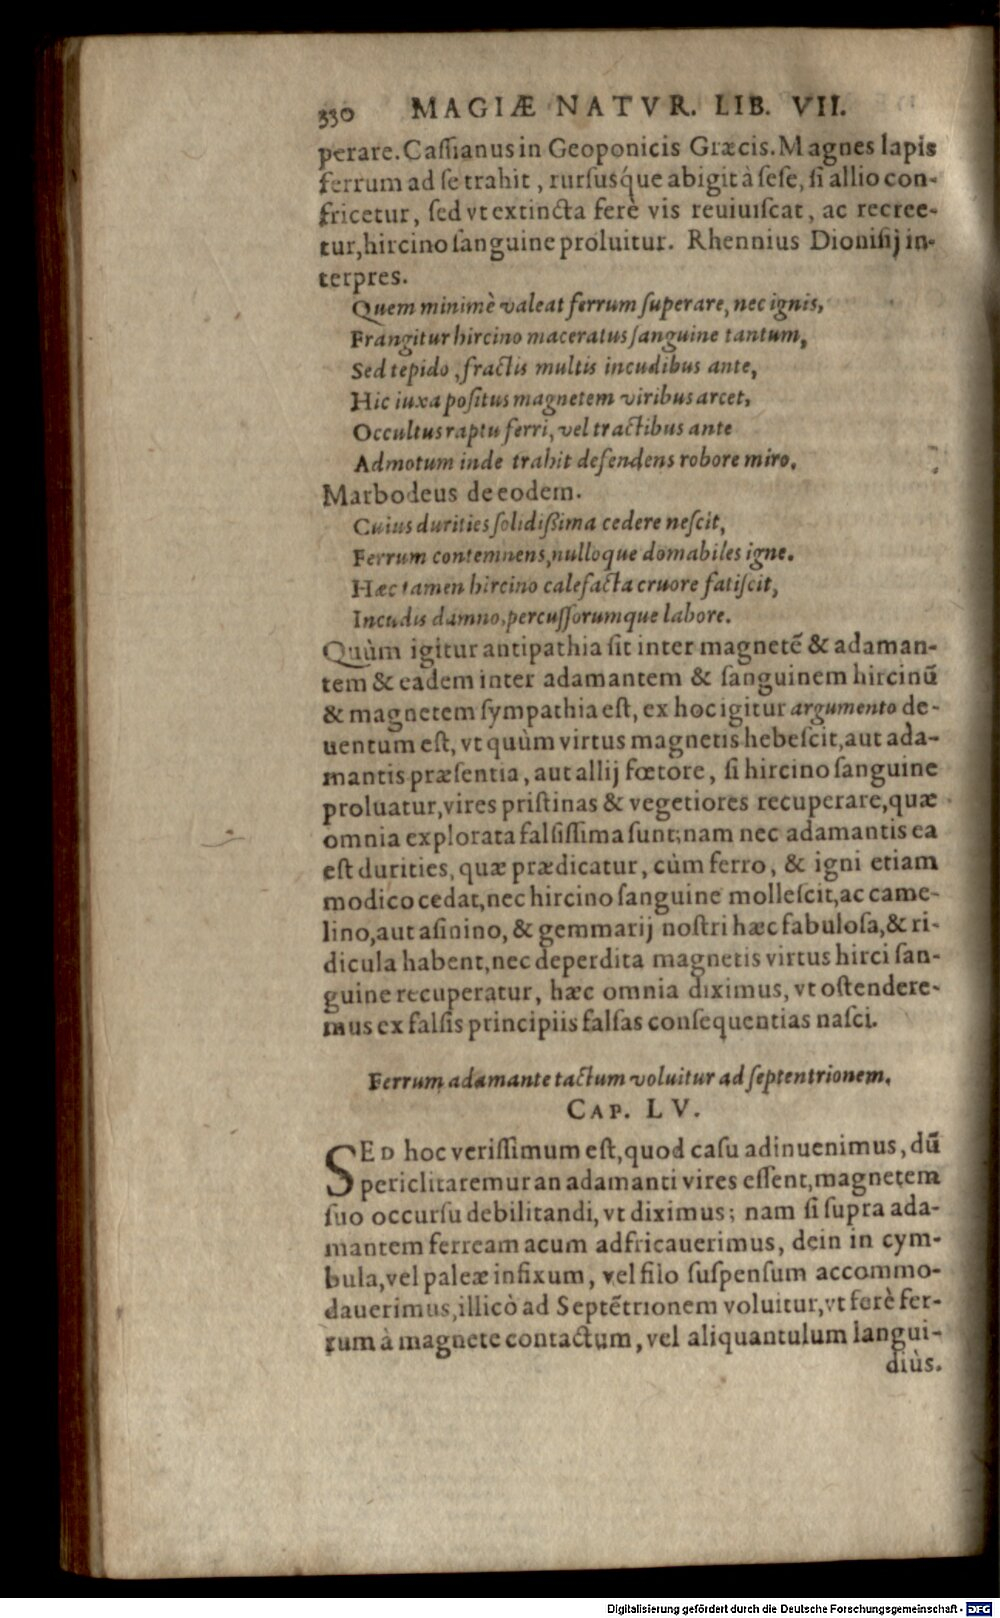 330 MAGIÆ NATVR. LIB. VII.
perare. Caſſianus in Geoponicis Græcis. Magnes lapis
ferrum ad ſe trahit, rurſusq́ue abigit à ſeſe, ſi allio con-
fricetur, ſed vt extincta ferè vis reuiuiſcat, ac recree-
tur, hircino ſanguine proluitur. Rhennius Dioniſij in-
terpres.
Quem minimè valeat ferrum ſuperare, nec ignis,
Frangitur hircino maceratus ſanguine tantum,
Sed tepido, fractis multis incudibus ante,
Hic iuxa poſitus magnetem viribus arcet,
Occultus raptu ferri, vel tractibus ante
Admotum inde trahit defendens robore miro.
Marbodeus de eodem.
Cuius durities ſolidißima cedere neſcit,
Ferrum contemnens, nulloque domabiles igne.
Hæc tamen hircino calefacta cruore fatiſcit,
Incudis damno, percuſſorumque labore.
Quùm igitur antipathia ſit inter magnetē & adaman-
tem & eadem inter adamantem & ſanguinem hircinū
& magnetem ſympathia eſt, ex hoc igitur argumento de-
uentum eſt, vt quùm virtus magnetis hebeſcit, aut ada-
mantis præſentia, aut allij fœtore, ſi hircino ſanguine
proluatur, vires priſtinas & vegetiores recuperare, quæ
omnia explorata falſiſſima ſunt; nam nec adamantis ea
eſt durities, quæ prædicatur, cùm ferro, & igni etiam
modico cedat, nec hircino ſanguine molleſcit, ac came-
lino, aut aſinino, & gemmarij noſtri hæc fabuloſa, & ri-
dicula habent, nec deperdita magnetis virtus hirci ſan-
guine recuperatur, hæc omnia diximus, vt oſtendere-
mus ex falſis principiis falſas conſequentias naſci.
Ferrum adamante tactum voluitur ad ſeptentrionem.
CAP. LV.
SED hoc veriſſimum eſt, quod caſu adinuenimus, dū
periclitaremur an adamanti vires eſſent, magnetem
ſuo occurſu debilitandi, vt diximus; nam ſi ſupra ada-
mantem ferream acum adfricauerimus, dein in cym-
bula, vel paleæ infixum, vel filo ſuſpenſum accommo-
dauerimus, illicò ad Septētrionem voluitur, vt ferè fer-
rum à magnete contactum, vel aliquantulum langui-
diùs.
Digitalisierung gefördert durch die Deutsche Forschungsgemeinschaft - DFG